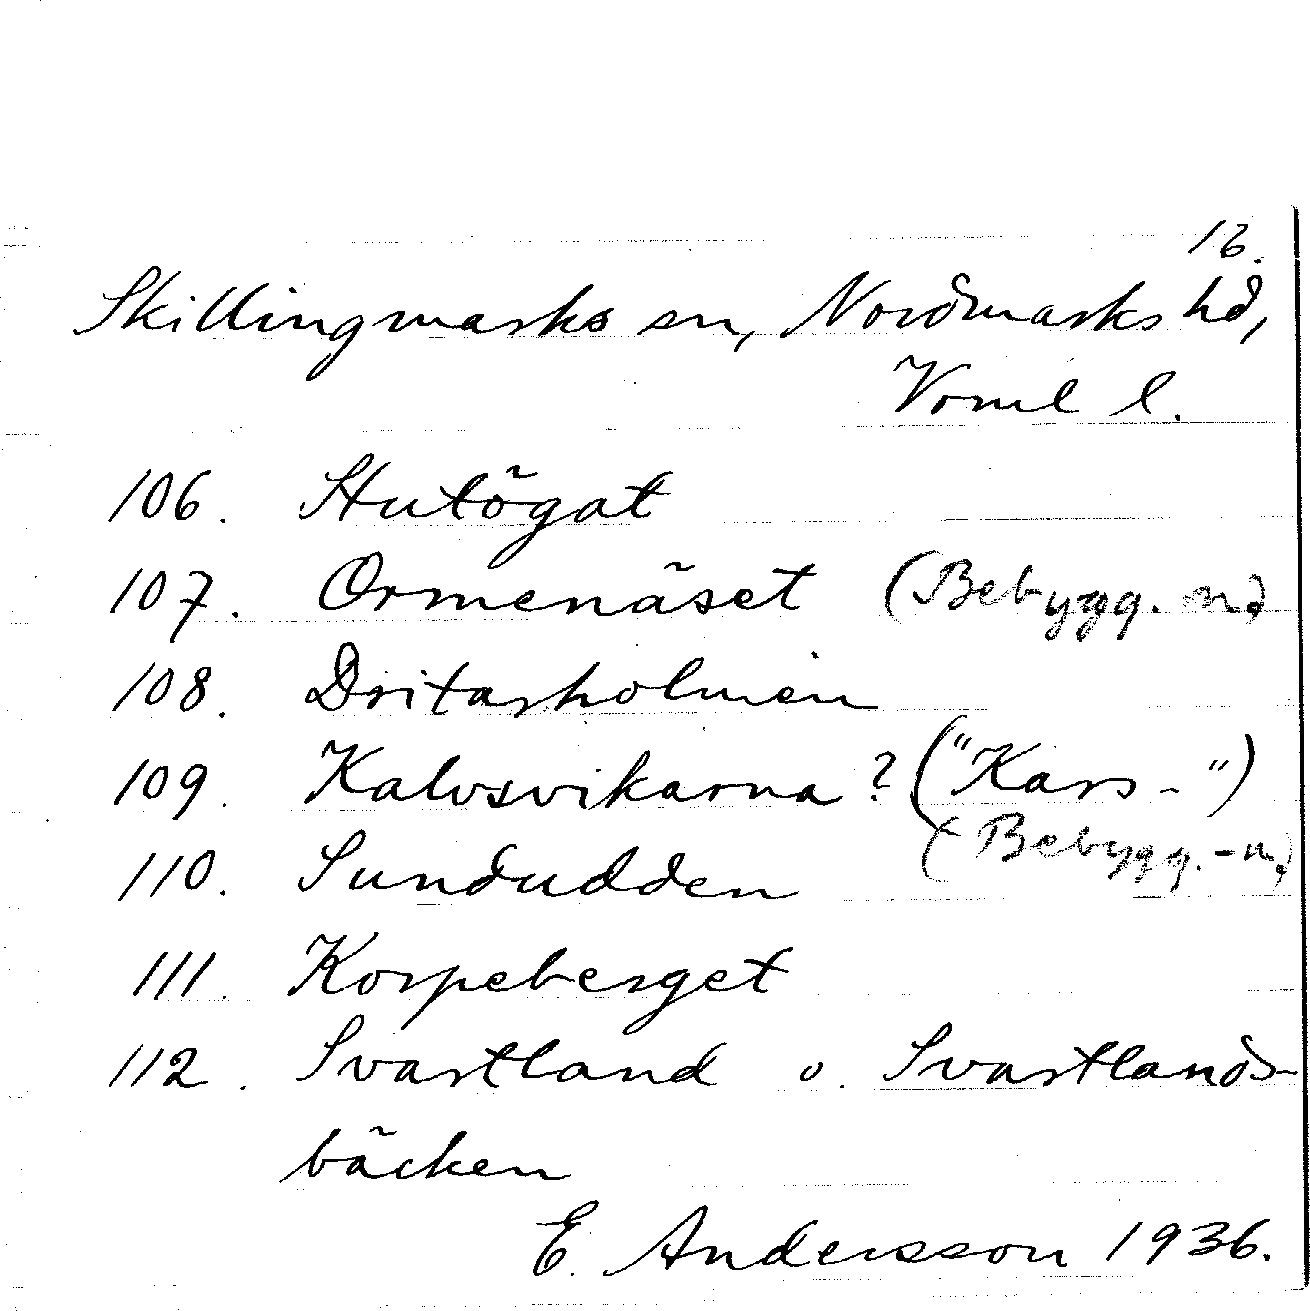 16.
Skillingmarks sn, Nordmarks hd,
Vrml l.
106. Hutögat
107. Ormenäset (Bebygg. n.)
108. Dritarholmen
109. Kalvsvikarna ? ("Kars-")
(Bebygg.-n.)
110. Sundudden
111. Korpeberget
112. Svartland o. Svartlands-
bäcken
E. Andersson 1936.